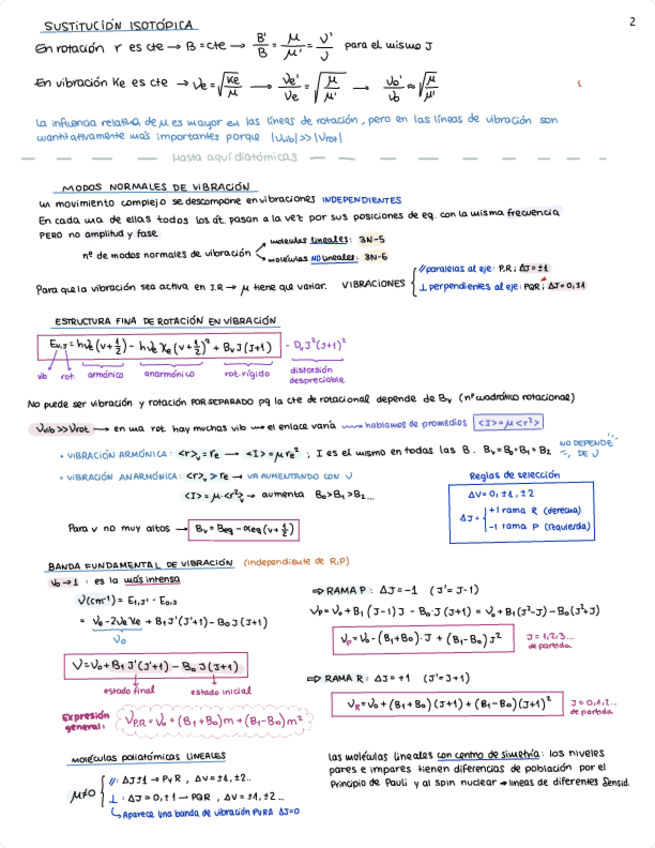 SUSTITUCIÓN ISOTÓPICA
2
En rotación r es cte → B = cte → B'/B = μ/μ' = ν'/ν para el mismo J
En vibración Ke es cte → νe = √(Ke/μ) → νe'/νe = √(μ/μ') → ν0'/ν0 ≈ √(μ/μ')
La influencia relativa de μ es mayor en las líneas de rotación, pero en las líneas de vibración son
cuantitativamente más importantes porque |νvib| >> |νrot|
Hasta aquí diatómicas
MODOS NORMALES DE VIBRACIÓN
un movimiento complejo se descompone en vibraciones INDEPENDIENTES
En cada una de ellas todos los át. pasan a la vez por sus posiciones de eq. con la misma frecuencia
PERO no amplitud y fase
nº de modos normales de vibración
moléculas lineales: 3N-5
moléculas NO lineales: 3N-6
Para que la vibración sea activa en I.R → μ tiene que variar. VIBRACIONES
// paralelas al eje: P,R; ΔJ = ±1
⊥ perpendientes al eje: PQR; ΔJ = 0, ±1
ESTRUCTURA FINA DE ROTACIÓN EN VIBRACIÓN
Ev,J = hνe(v+1/2) - hνe Xe(v+1/2)² + Bv J(J+1) - Dv J²(J+1)²
vib rot. armónico anarmónico rot. rígido distorsión
despreciable
No puede ser vibración y rotación POR SEPARADO pq la cte de rotacional depende de Bv (nº cuadrático rotacional)
νvib >> νrot → en una rot. hay muchas vib → el enlace varía → hablamos de promedios <I> = μ<r²>
• VIBRACIÓN ARMÓNICA: <r>v = re → <I> = μ re² ; I es el mismo en todas las B. Bv = B0 = B1 = B2 NO DEPENDE
DE ν
• VIBRACIÓN ANARMÓNICA: <r>v > re → VA AUMENTANDO CON ν
Reglas de selección
<I> = μ·<r²>v → aumenta B0 > B1 > B2...
ΔV = 0, ±1, ±2
ΔJ = +1 rama R (derecha)
-1 rama P (izquierda)
Para v no muy altos → Bv = Beq - αeq(v+1/2)
BANDA FUNDAMENTAL DE VIBRACIÓN (independiente de R,P)
ν0→1 : es la más intensa
ν(cm⁻¹) = E1,J' - E0,J
= νe - 2νe Xe + B1 J'(J'+1) - B0 J(J+1)
ν0
ν = ν0 + B1 J'(J'+1) - B0 J(J+1)
estado final estado inicial
Expresión
general: νP,R = ν0 + (B1+B0)m + (B1-B0)m²
⇒ RAMA P: ΔJ = -1 (J' = J-1)
νP = ν0 + B1(J-1)J - B0·J(J+1) = ν0 + B1(J²-J) - B0(J²+J)
νP = ν0 - (B1+B0)·J + (B1-B0)J² J = 1,2,3...
de partida
⇒ RAMA R: ΔJ = +1 (J' = J+1)
νR = ν0 + (B1+B0)(J+1) + (B1-B0)(J+1)² J = 0,1,2...
de partida
MOLÉCULAS POLIATÓMICAS LINEALES
μ≠0
//: ΔJ ±1 → P y R, ΔV = ±1, ±2..
⊥: ΔJ = 0, ±1 → PQR, ΔV = ±1, ±2...
↳ Aparece una banda de vibración PURA ΔJ=0
las moléculas lineales con centro de simetría: los niveles
pares e impares tienen diferencias de población por el
Principio de Pauli y al spin nuclear → líneas de diferentes Sensid.